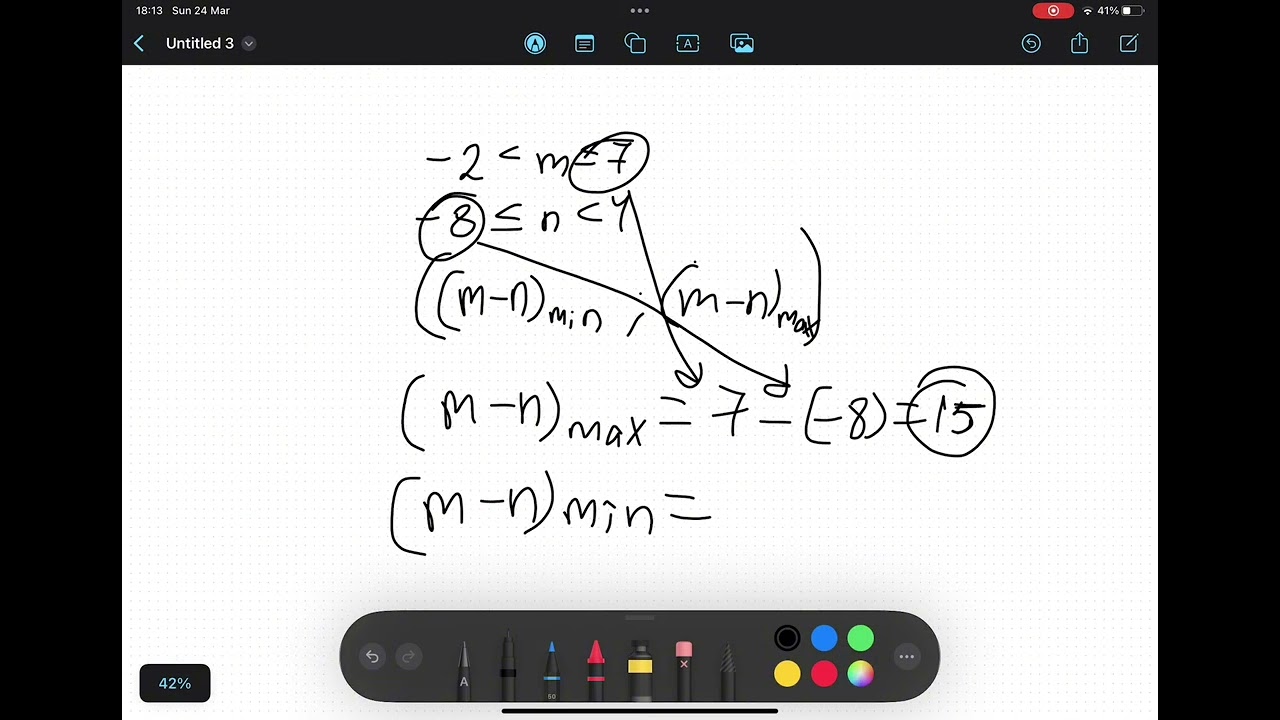 18:13 Sun 24 Mar
41%
Untitled 3
A
-2 < m ≤ 7
-8 ≤ n < 4
((m-n)min ; (m-n)max)
(m-n)max = 7 - (-8) = 15
(m-n)min =
A
50
42%